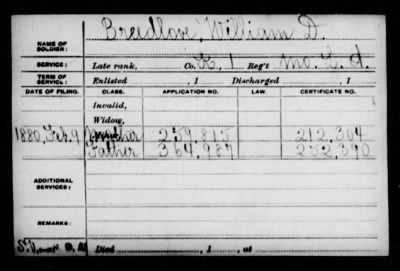 Breedlove, William D.
NAME OF SOLDIER:
SERVICE: Late rank, Co. K, 1 Reg't Mo. L. A.
TERM OF SERVICE: Enlisted , 1 Discharged , 1
DATE OF FILING. CLASS. APPLICATION NO. LAW. CERTIFICATE NO.
Invalid,
Widow,
1880, Feb. 9 Mother 259,815 212,304
Father 364,987 252,390
ADDITIONAL SERVICES:
REMARKS:
Died , 1 , at